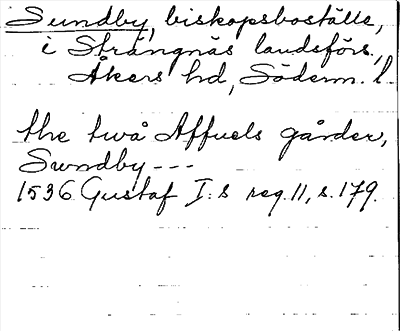 Sundby, biskopsboställe,
i Strängnäs landsförs.,
Åkers hd, Söderm. l.
the twå Affuels gårder,
Swndby ---
1536 Gustaf I:s reg. 11, s. 179.